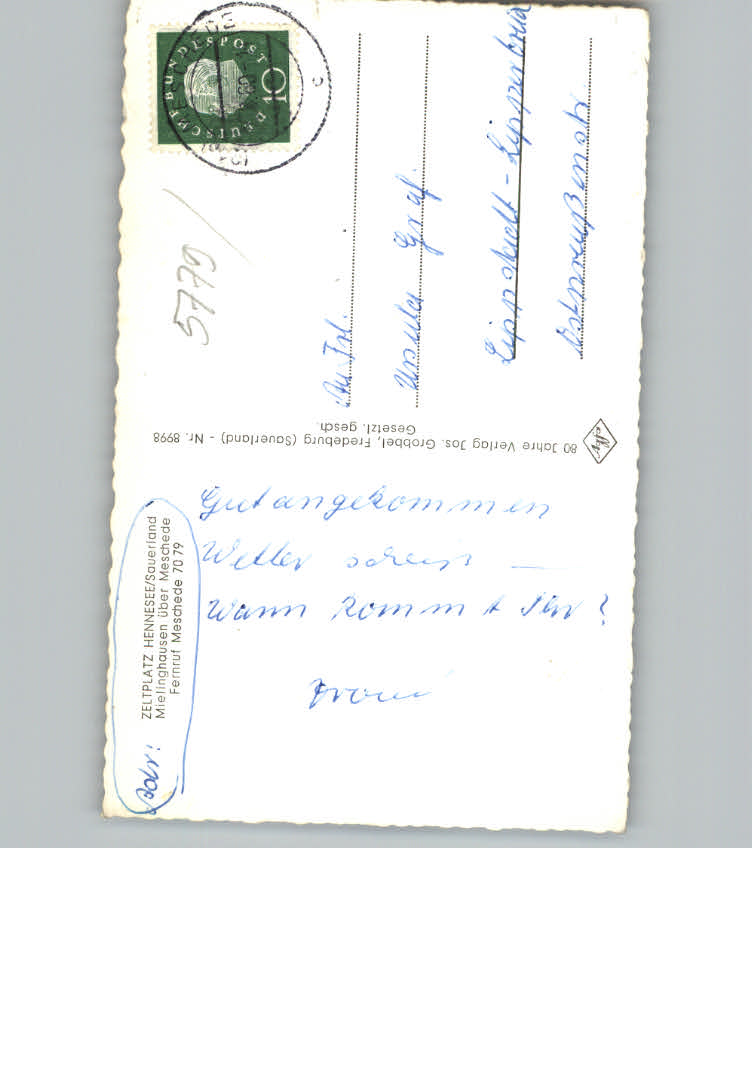 Adr:
ZELTPLATZ HENNESEE/Sauerland
Mielinghausen über Meschede
Fernruf Meschede 70 79
Gut angekommen
Wetter scheiß —
Wann kommt Ihr?
80 Jahre Verlag Jos. Grobbel, Fredeburg (Sauerland) - Nr. 8998
Gesetzl. gesch.
DEUTSCHE BUNDESPOST
10
c
5779
An Frl.
Ursula Graf
Lippstadt - Lipperbruch
Ostpreußenstr.